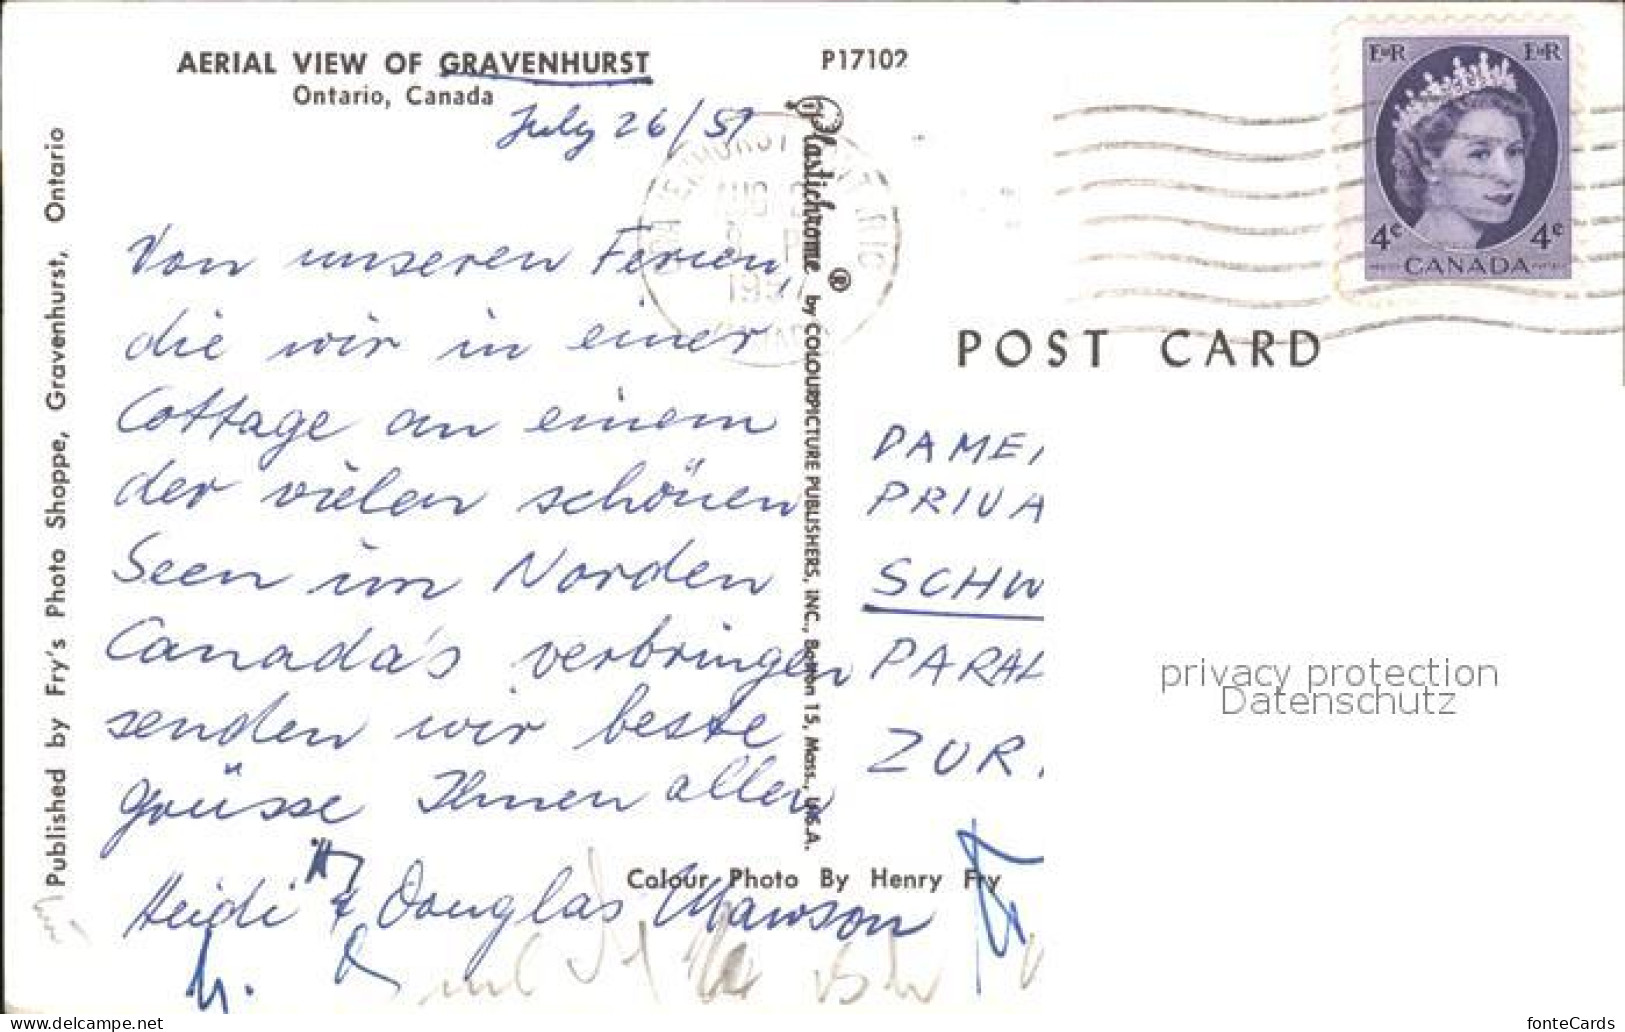 AERIAL VIEW OF GRAVENHURST
Ontario, Canada
P17102
July 26/57
Von unseren Ferien,
die wir in einer
Cottage an einem
der vielen schönen
Seen im Norden
Canada's verbringen
senden wir beste
grüsse Ihnen allen
Heidi & Douglas Mawson
Published by Fry's Photo Shoppe, Gravenhurst, Ontario
Plastichrome ® by COLOURPICTURE PUBLISHERS, INC., Boston 15, Mass., U.S.A.
Colour Photo By Henry Fry
E II R E II R
4¢ 4¢
CANADA
POST CARD
DAME,
PRIVA
SCHW
PARAL
ZUR.
privacy protection
Datenschutz
www.delcampe.net
fonteCards